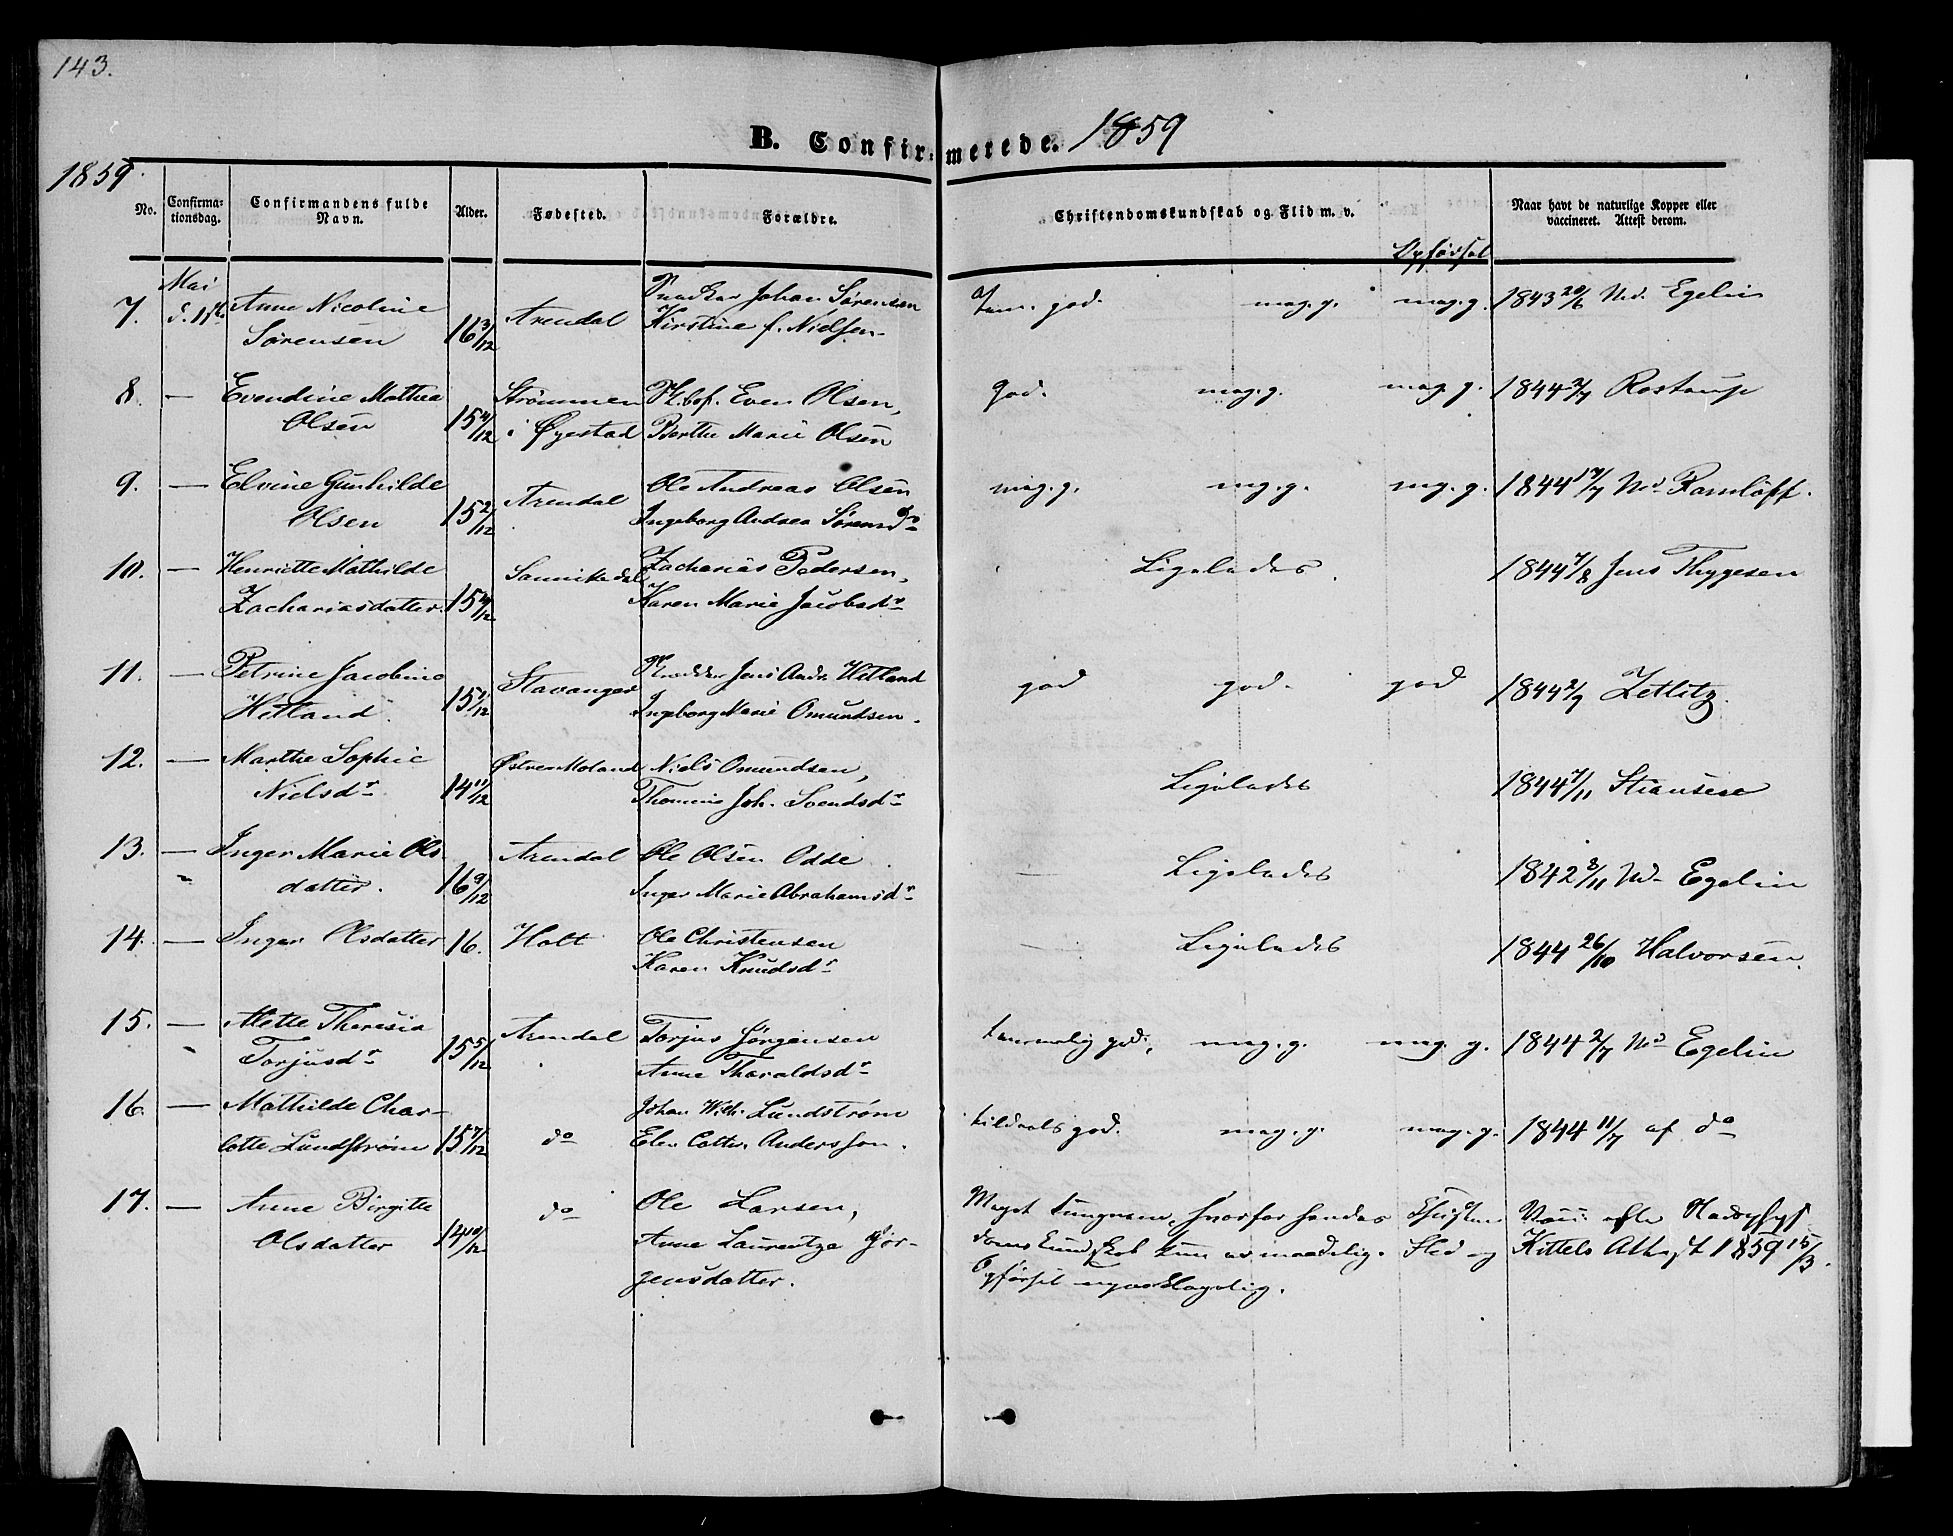 143.
B. Confirmerede. 1859
1859.
No.
Confirma-
tionsdag.
Confirmandens fulde
Navn.
Alder.
Fødested.
Forældre.
Christendomskundskab og Flid m. v.
Opførsel
Naar havt de naturlige Kopper eller
vaccineret. Attest derom.
7. Mai Anne Nicoline Sørensen 16 3/12 Arendal Johan Sørensen
Kirstine f. Nielsen
god. meg. g. meg. g. 1843 20/6 Egelin
8. — Evendine Mathea Olsen 15 4/12 Strømmen i Øyestad Even Olsen,
Berthe Marie Olsen
god. meg. g. meg. g. 1844 Rostrup
9. — Elvine Gunhilde Olsen 15 2/12 Arendal Ole Andreas Olsen
Ingeborg Andrea Sørensdr
meg. g. meg. g. meg. g. 1844 17/7 Ramløff.
10. — Henriette Mathilde Zachariasdatter. 15 4/12 Sannikedal Zacharias Pedersen,
Karen Marie Jacobsdr
Ligeledes. 1844 Jens Thygesen
11. — Petrine Jacobine Hetland. 15 1/12 Stavanger Jens Andr. Hetland
Ingeborg Marie Omundsen.
god god. god 1844 2/9 Zetlitz.
12. — Marthe Sophie Nielsdr 14 11/12 Østre Moland Niels Omundsen,
Thomine Joh. Svendsdr
Ligeledes 1844 7/11 Stiansen
13. — Inger Marie Olsdatter. 16 9/12 Arendal Ole Olsen Odde
Inger Marie Abrahamsdr
Ligeledes 1842 8/11 Egelin
14. — Inger Olsdatter 16. Holt Ole Christensen
Karen Knudsdr
Ligeledes 1844 26/10 Halvorsen.
15. — Mette Theresia Torjusdr 15 5/12 Arendal Torjus Jørgensen
Anne Tharaldsdr
temmelig god. meg. g. meg. g. 1844 2/7 Egelin
16. — Mathilde Charlotte Lundstrøm 15 7/12 do Johan Wilh. Lundstrøm
Elen Cathr. Andersson.
tildeels god. meg. g. meg. g. 1844 11/7 af do
17. — Anne Birgitte Olsdatter 14 10/12 do Ole Larsen,
Anne Laurentze Jørgensdatter.
Meget tungnem, hvorfor hendes Christen
doms Kundskab kun er maadelig. Flid og
Opførsel upaaklagelig.
Vacc: efter Stadsphys.
Kittels Attest 1859 15/3.